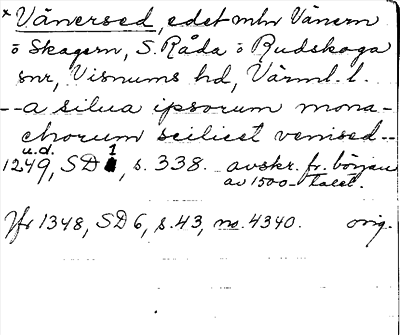 x Vänersed, edet mln Vänern
o Skagern, S. Råda o Rudskoga
snr, Visnums hd, Värml. l.
--a silua ipsorum mona-
chorum scilicet venised--
u.d.
1249, SD 1, s. 338. avskr. fr. början
av 1500-talet.
Jfr 1348, SD 6, s. 43, no. 4340. orig.